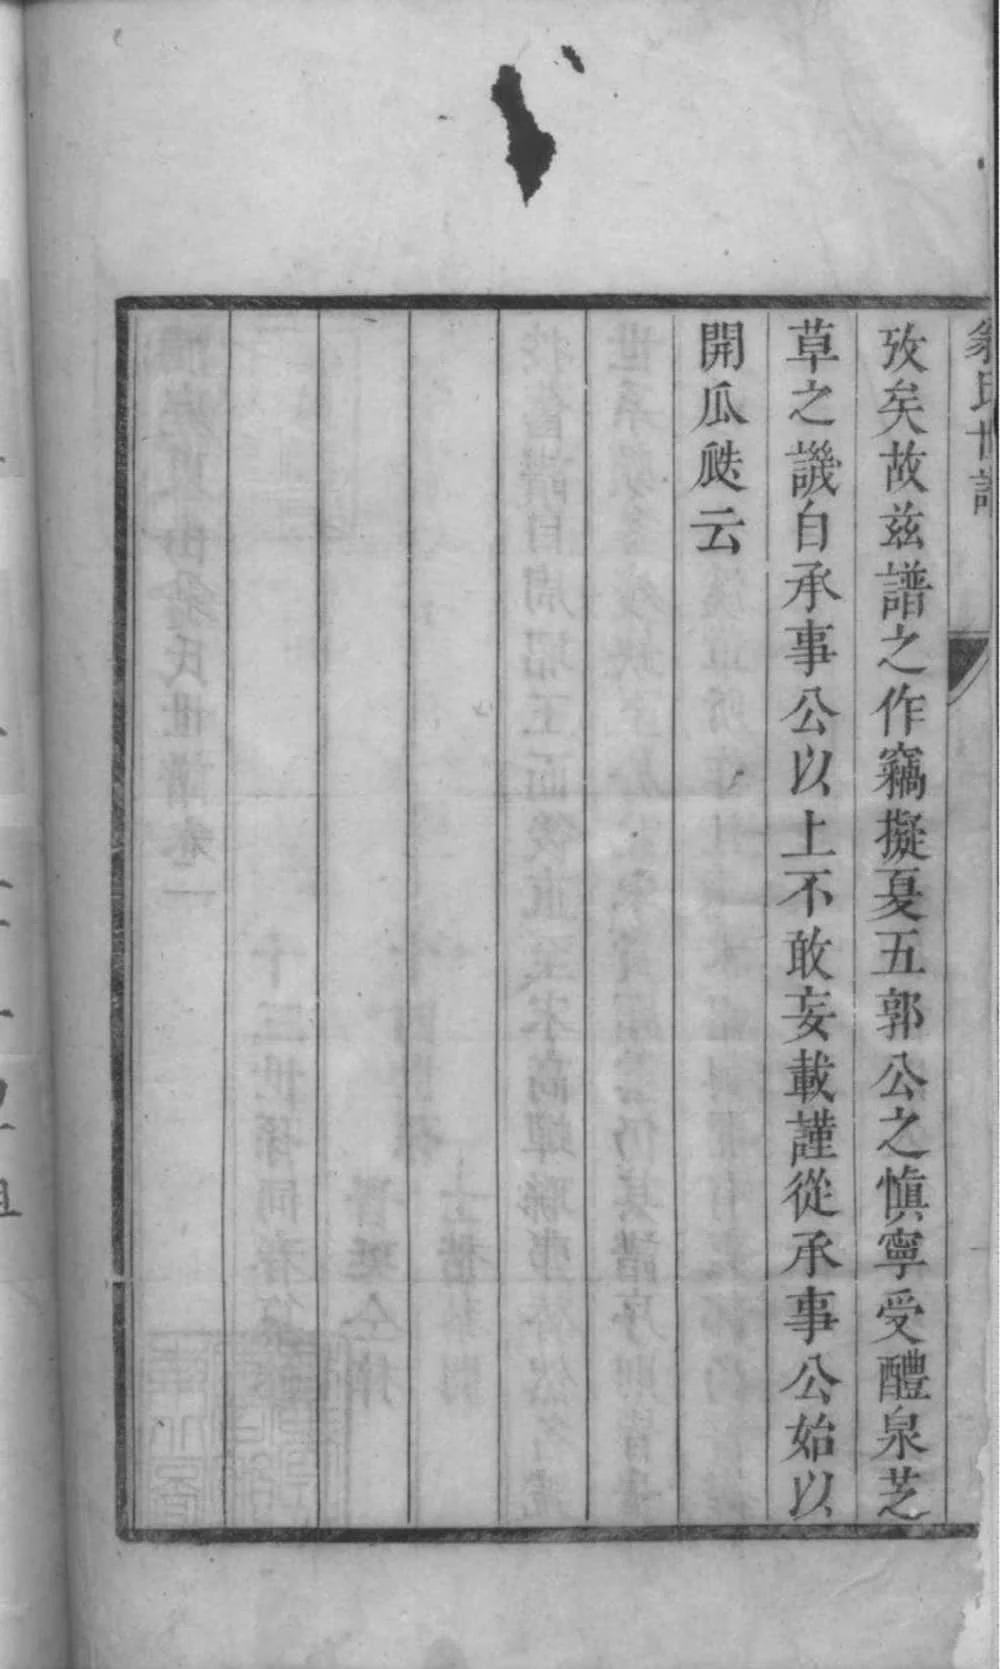 翁氏世譜
攷矣故兹譜之作竊擬夏五郭公之愼寧受醴泉芝
草之譏自承事公以上不敢妄載謹從承事公始以
開瓜瓞云